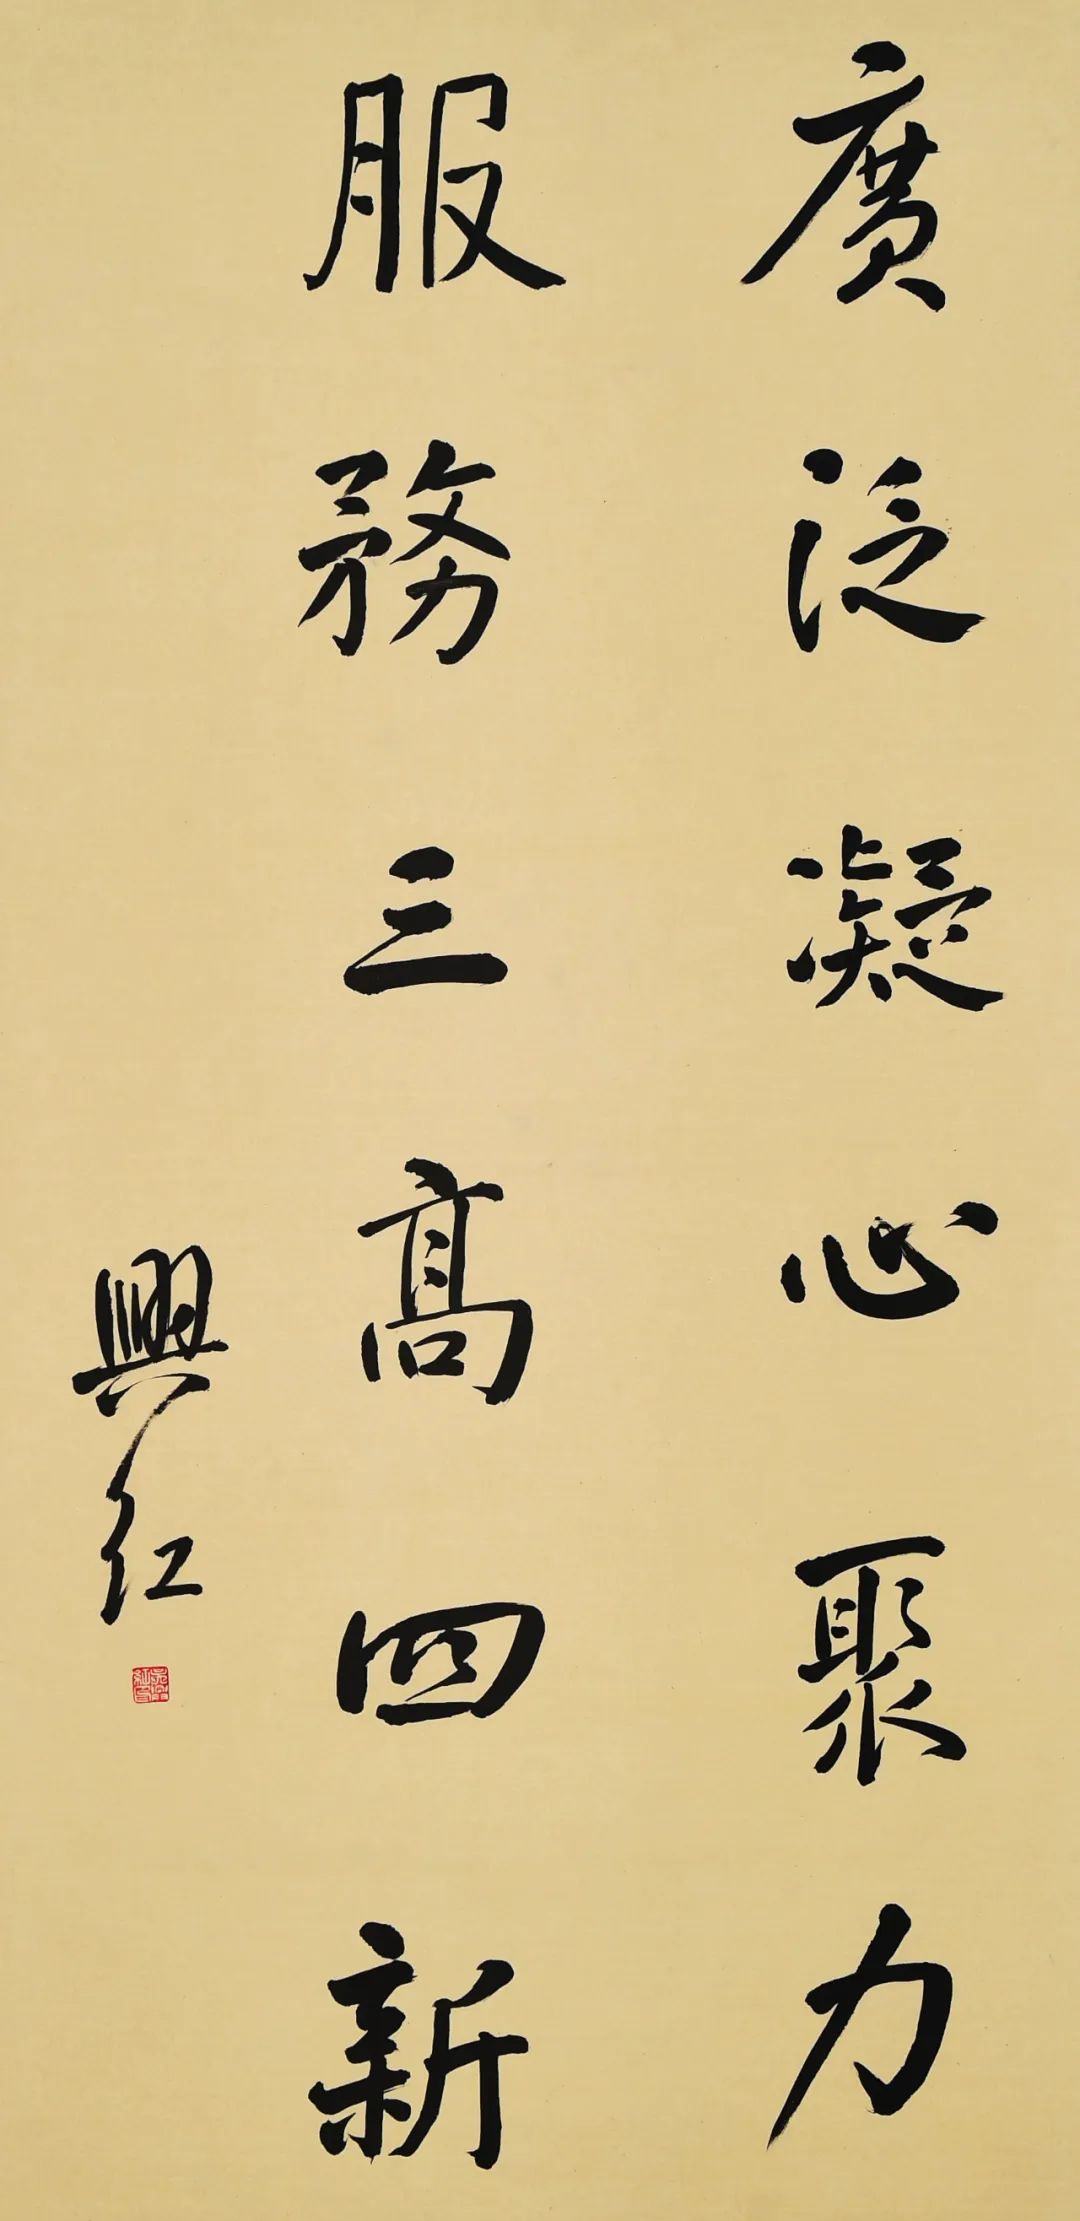 廣泛凝心聚力
服務三高四新
興红